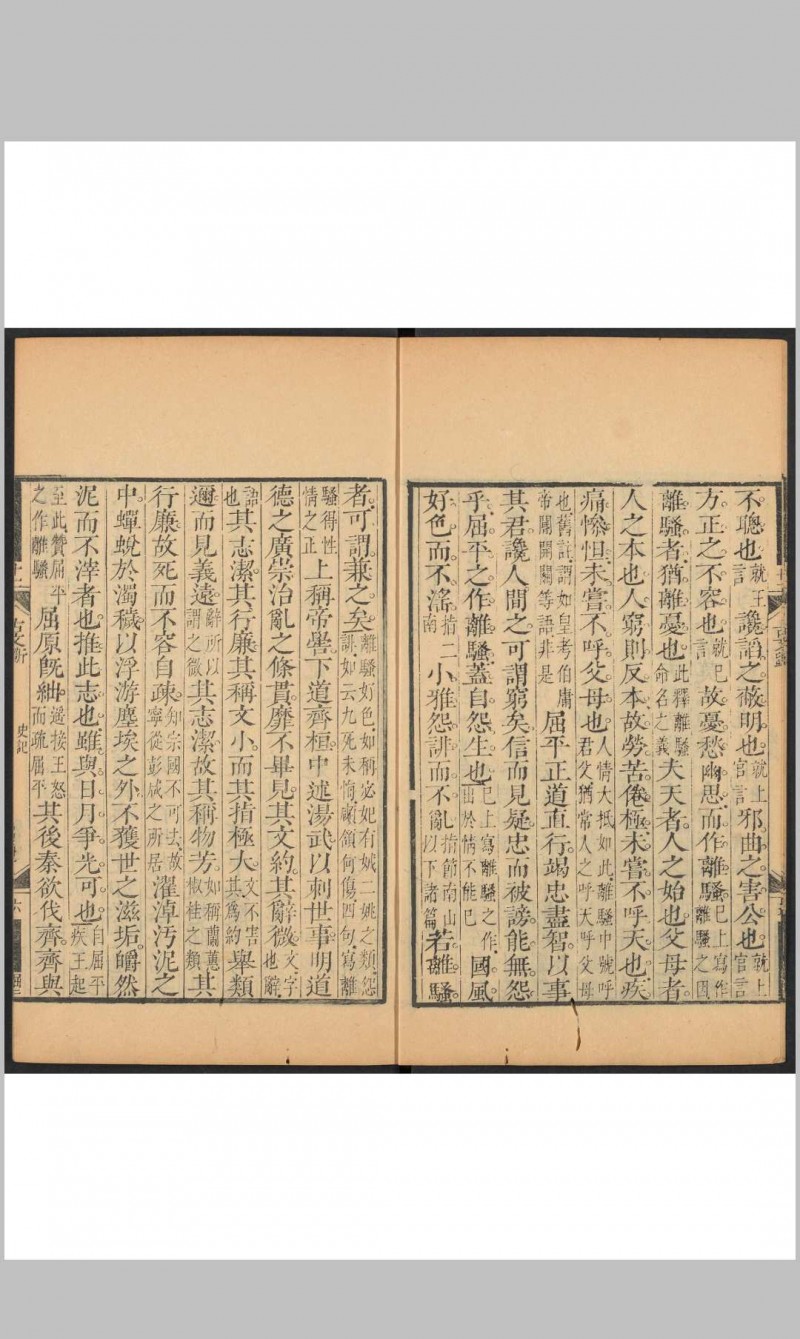 不聰也就王言讒諂之蔽明也就上官言邪曲之害公也就上官言
方正之不容也就已言故憂愁幽思而作離騷已上寫作離騷之因
離騷者猶離憂也此釋離騷命名之義夫天者人之始也父母者
人之本也人窮則反本故勞苦倦極未嘗不呼天也疾
痛慘怛未嘗不呼父母也人情大抵如此離騷中號呼君父猶常人之呼天呼父母
也舊註謂如皇考伯庸帝閽開關等語非是屈平正道直行竭忠盡智以事
其君讒人間之可謂窮矣信而見疑忠而被謗能無怨
乎屈平之作離騷蓋自怨生也已上寫離騷之作出於情不能已國風
好色而不淫指二南小雅怨誹而不亂指節南山以下諸篇若離騷
者可謂兼之矣離騷好色如稱宓妃有娀二姚之類怨誹如云九死未悔顑頷何傷四句寫離
騷得性情之正上稱帝嚳下道齊桓中述湯武以刺世事明道
德之廣崇治亂之條貫靡不畢見其文約其辭微文字也辭
語也其志潔其行廉其稱文小而其指極大文不害其為約舉類
邇而見義遠辭所以謂之微其志潔故其稱物芳如稱蘭蕙椒桂之類其
行廉故死而不容自疎知宗國不可去故寧從彭咸之所居濯淖汚泥之
中蟬蛻於濁穢以浮游塵埃之外不獲世之滋垢皭然
泥而不滓者也推此志也雖與日月爭光可也自屈平疾王起
至此贊屈平之作離騷屈原旣絀遙接王怒而疏屈平其後秦欲伐齊齊與
史記